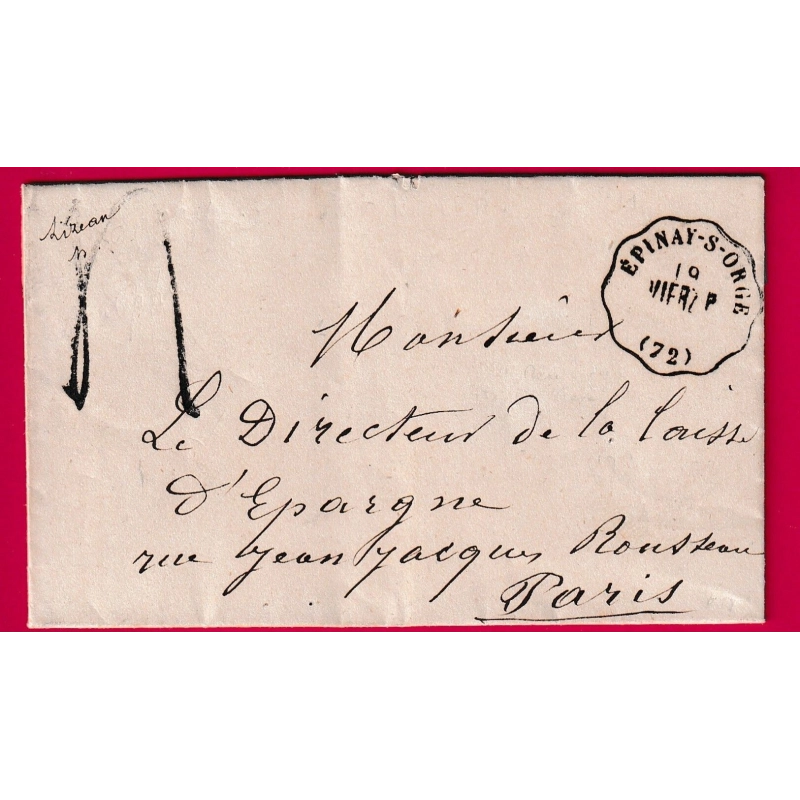 ÉPINAY-S-ORGE
19
(72)
Monsieur
Le Directeur de la Caisse
d'Epargne
rue Jean Jacques Rousseau
Paris